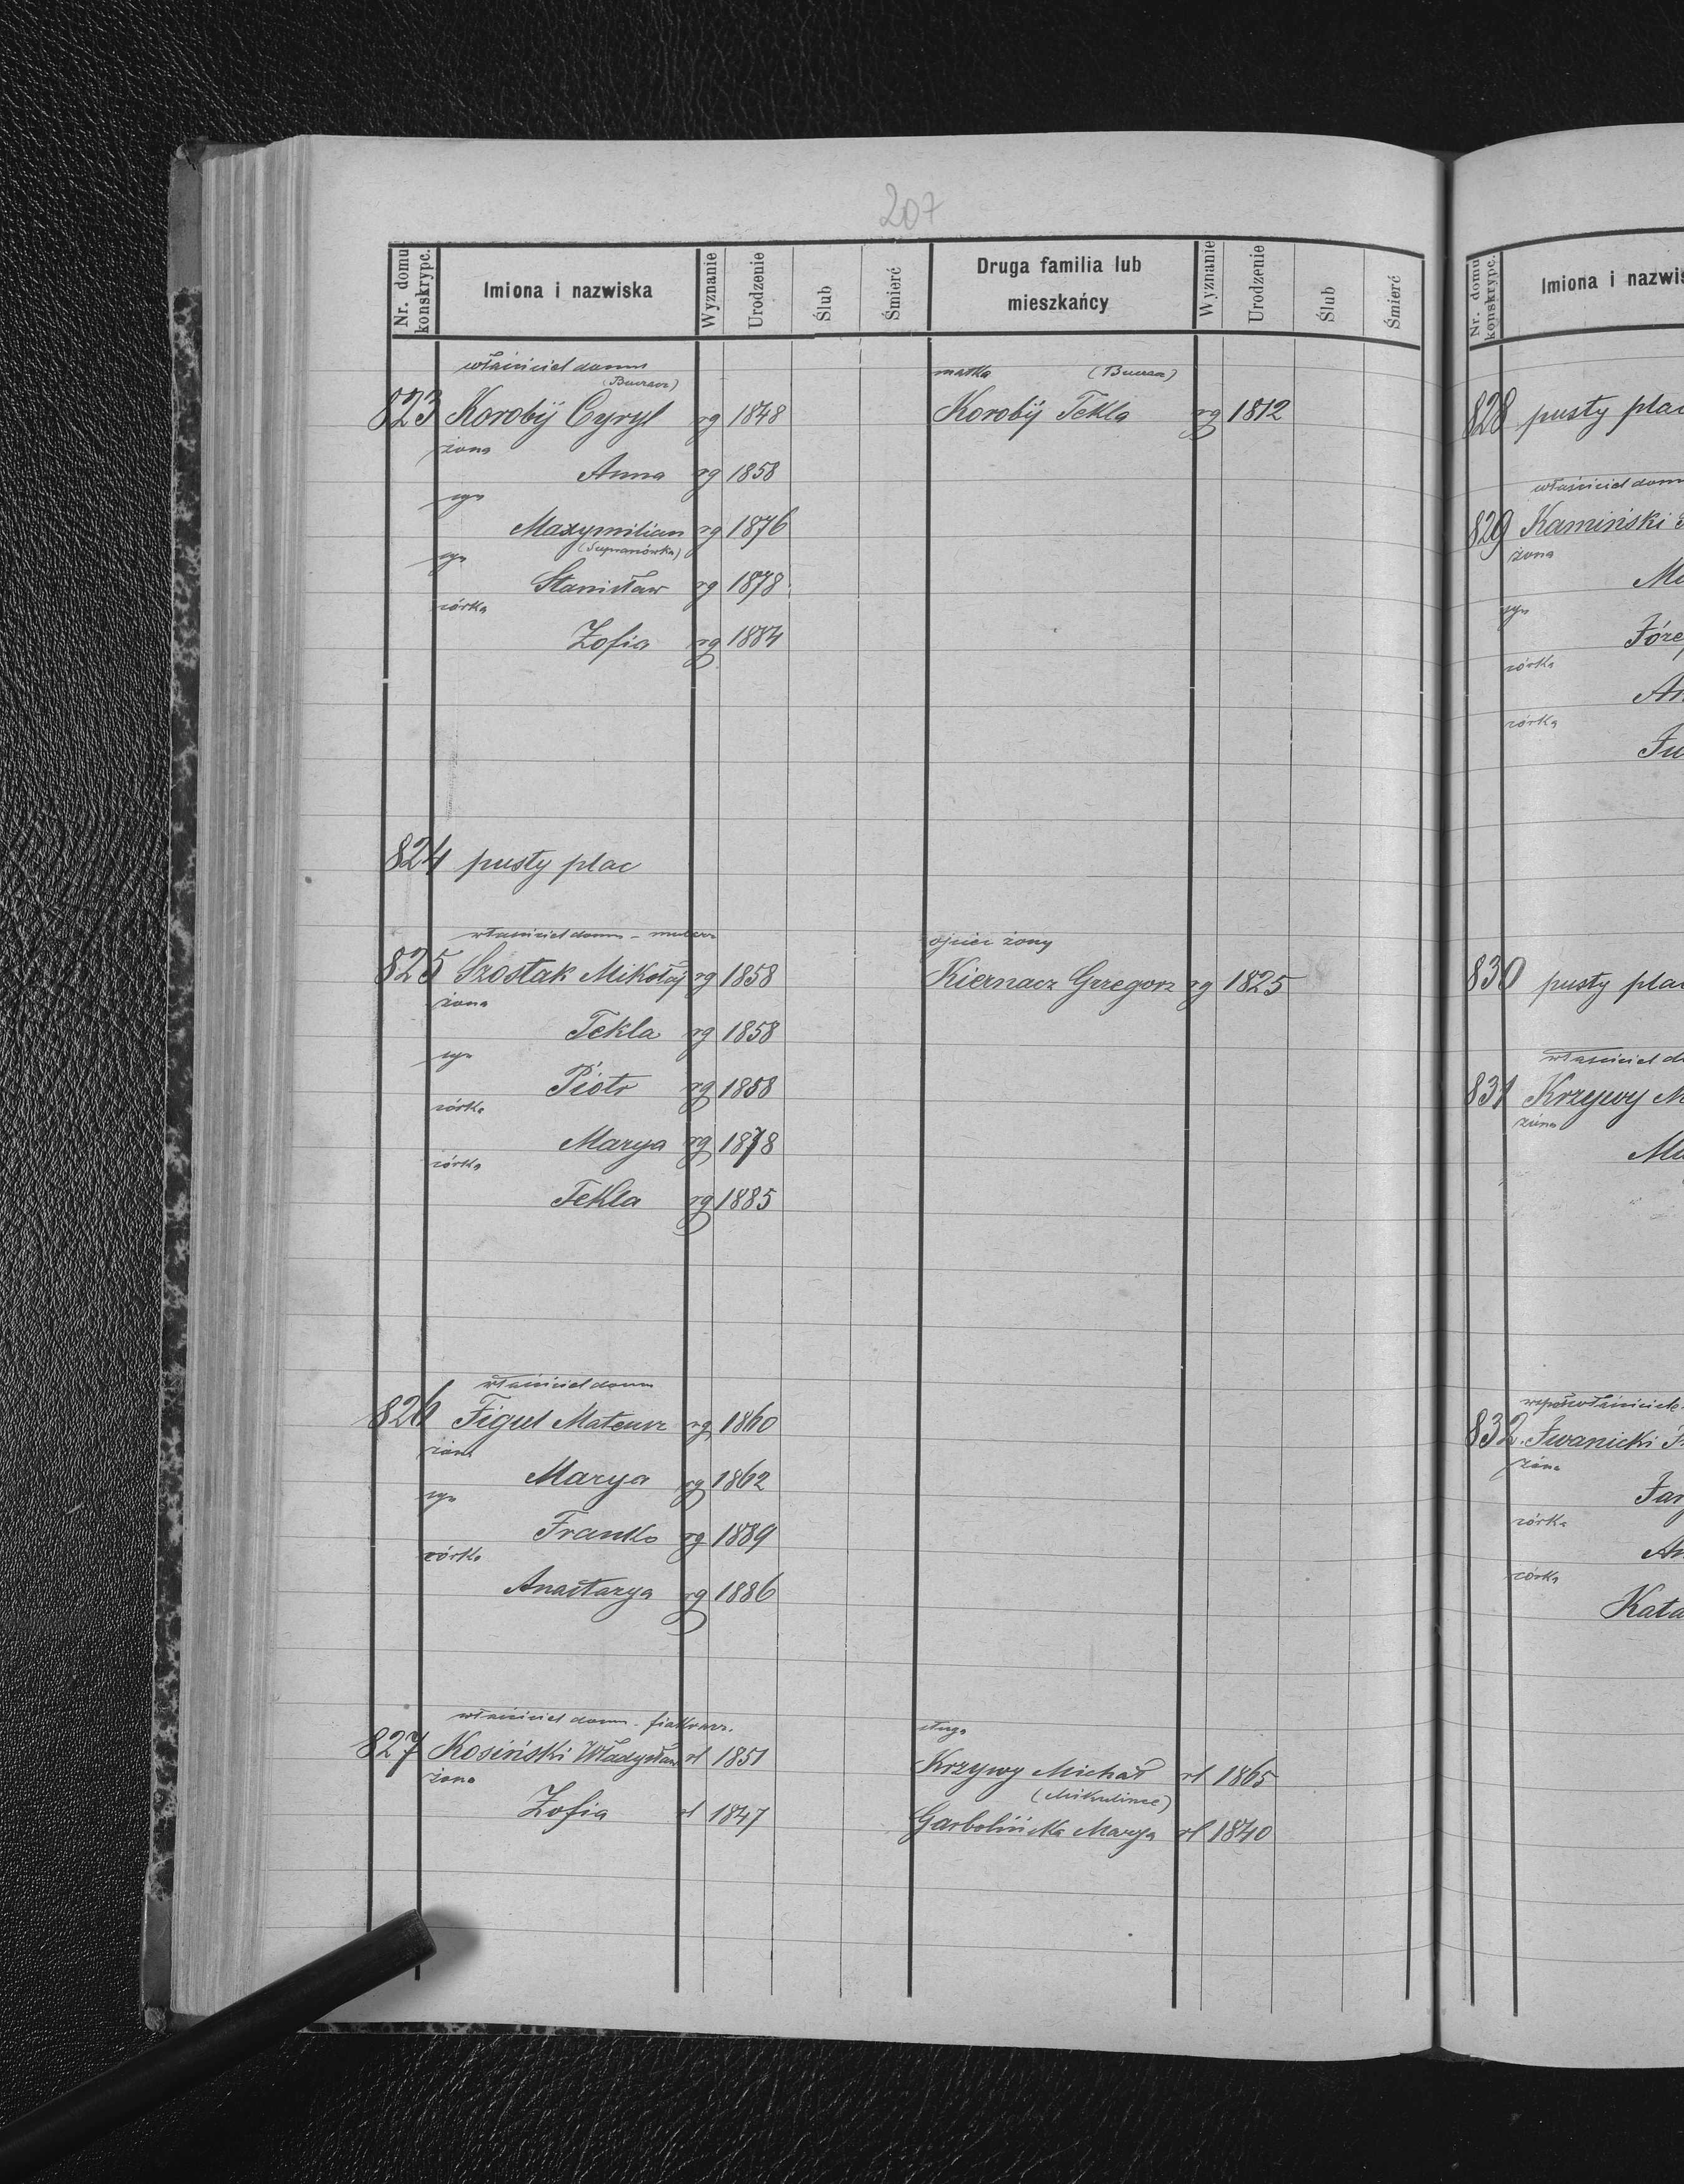 207
Nr. domu konskrypc.
Imiona i nazwiska
Wyznanie
Urodzenie
Ślub
Śmierć
Druga familia lub mieszkańcy
Wyznanie
Urodzenie
Ślub
Śmierć
właściciel domu
823 Korobij Cyryl rg 1848
żona
Anna rg 1858
syn
Maxymilian rg 1876
syn
Stanisław rg 1878
córka
Zofia rg 1884
matka
Korobij Tekla rg 1812
824 pusty plac
właściciel domu - mularz
825 Szostak Mikołaj rg 1858
żona
Tekla rg 1858
syn
Piotr rg 1858
córka
Marya rg 1878
córka
Tekla rg 1885
ojciec żony
Kiernacz Grzegorz rg 1825
właściciel domu
826 Figul Mateusz rg 1860
żona
Marya rg 1862
syn
Franko rg 1889
córka
Anastazya rg 1886
właściciel domu - fiakrarz.
827 Kosiński Władysław rl 1851
żona
Zofia rl 1847
sługa
Krzywy Michał rl 1865
(Mikulince)
Garbolińska Marya rl 1840
Nr. domu konskrypc.
Imiona i nazwis
828 pusty plac
właściciel dom
829 Kamiński
żona
syn
Józe
córka
An
córka
Ju
830 pusty plac
właściciel d
831 Krzywy M
żona
Ma
współwłaściciele
832. Iwanicki
żona
córka
An
córka
Kata